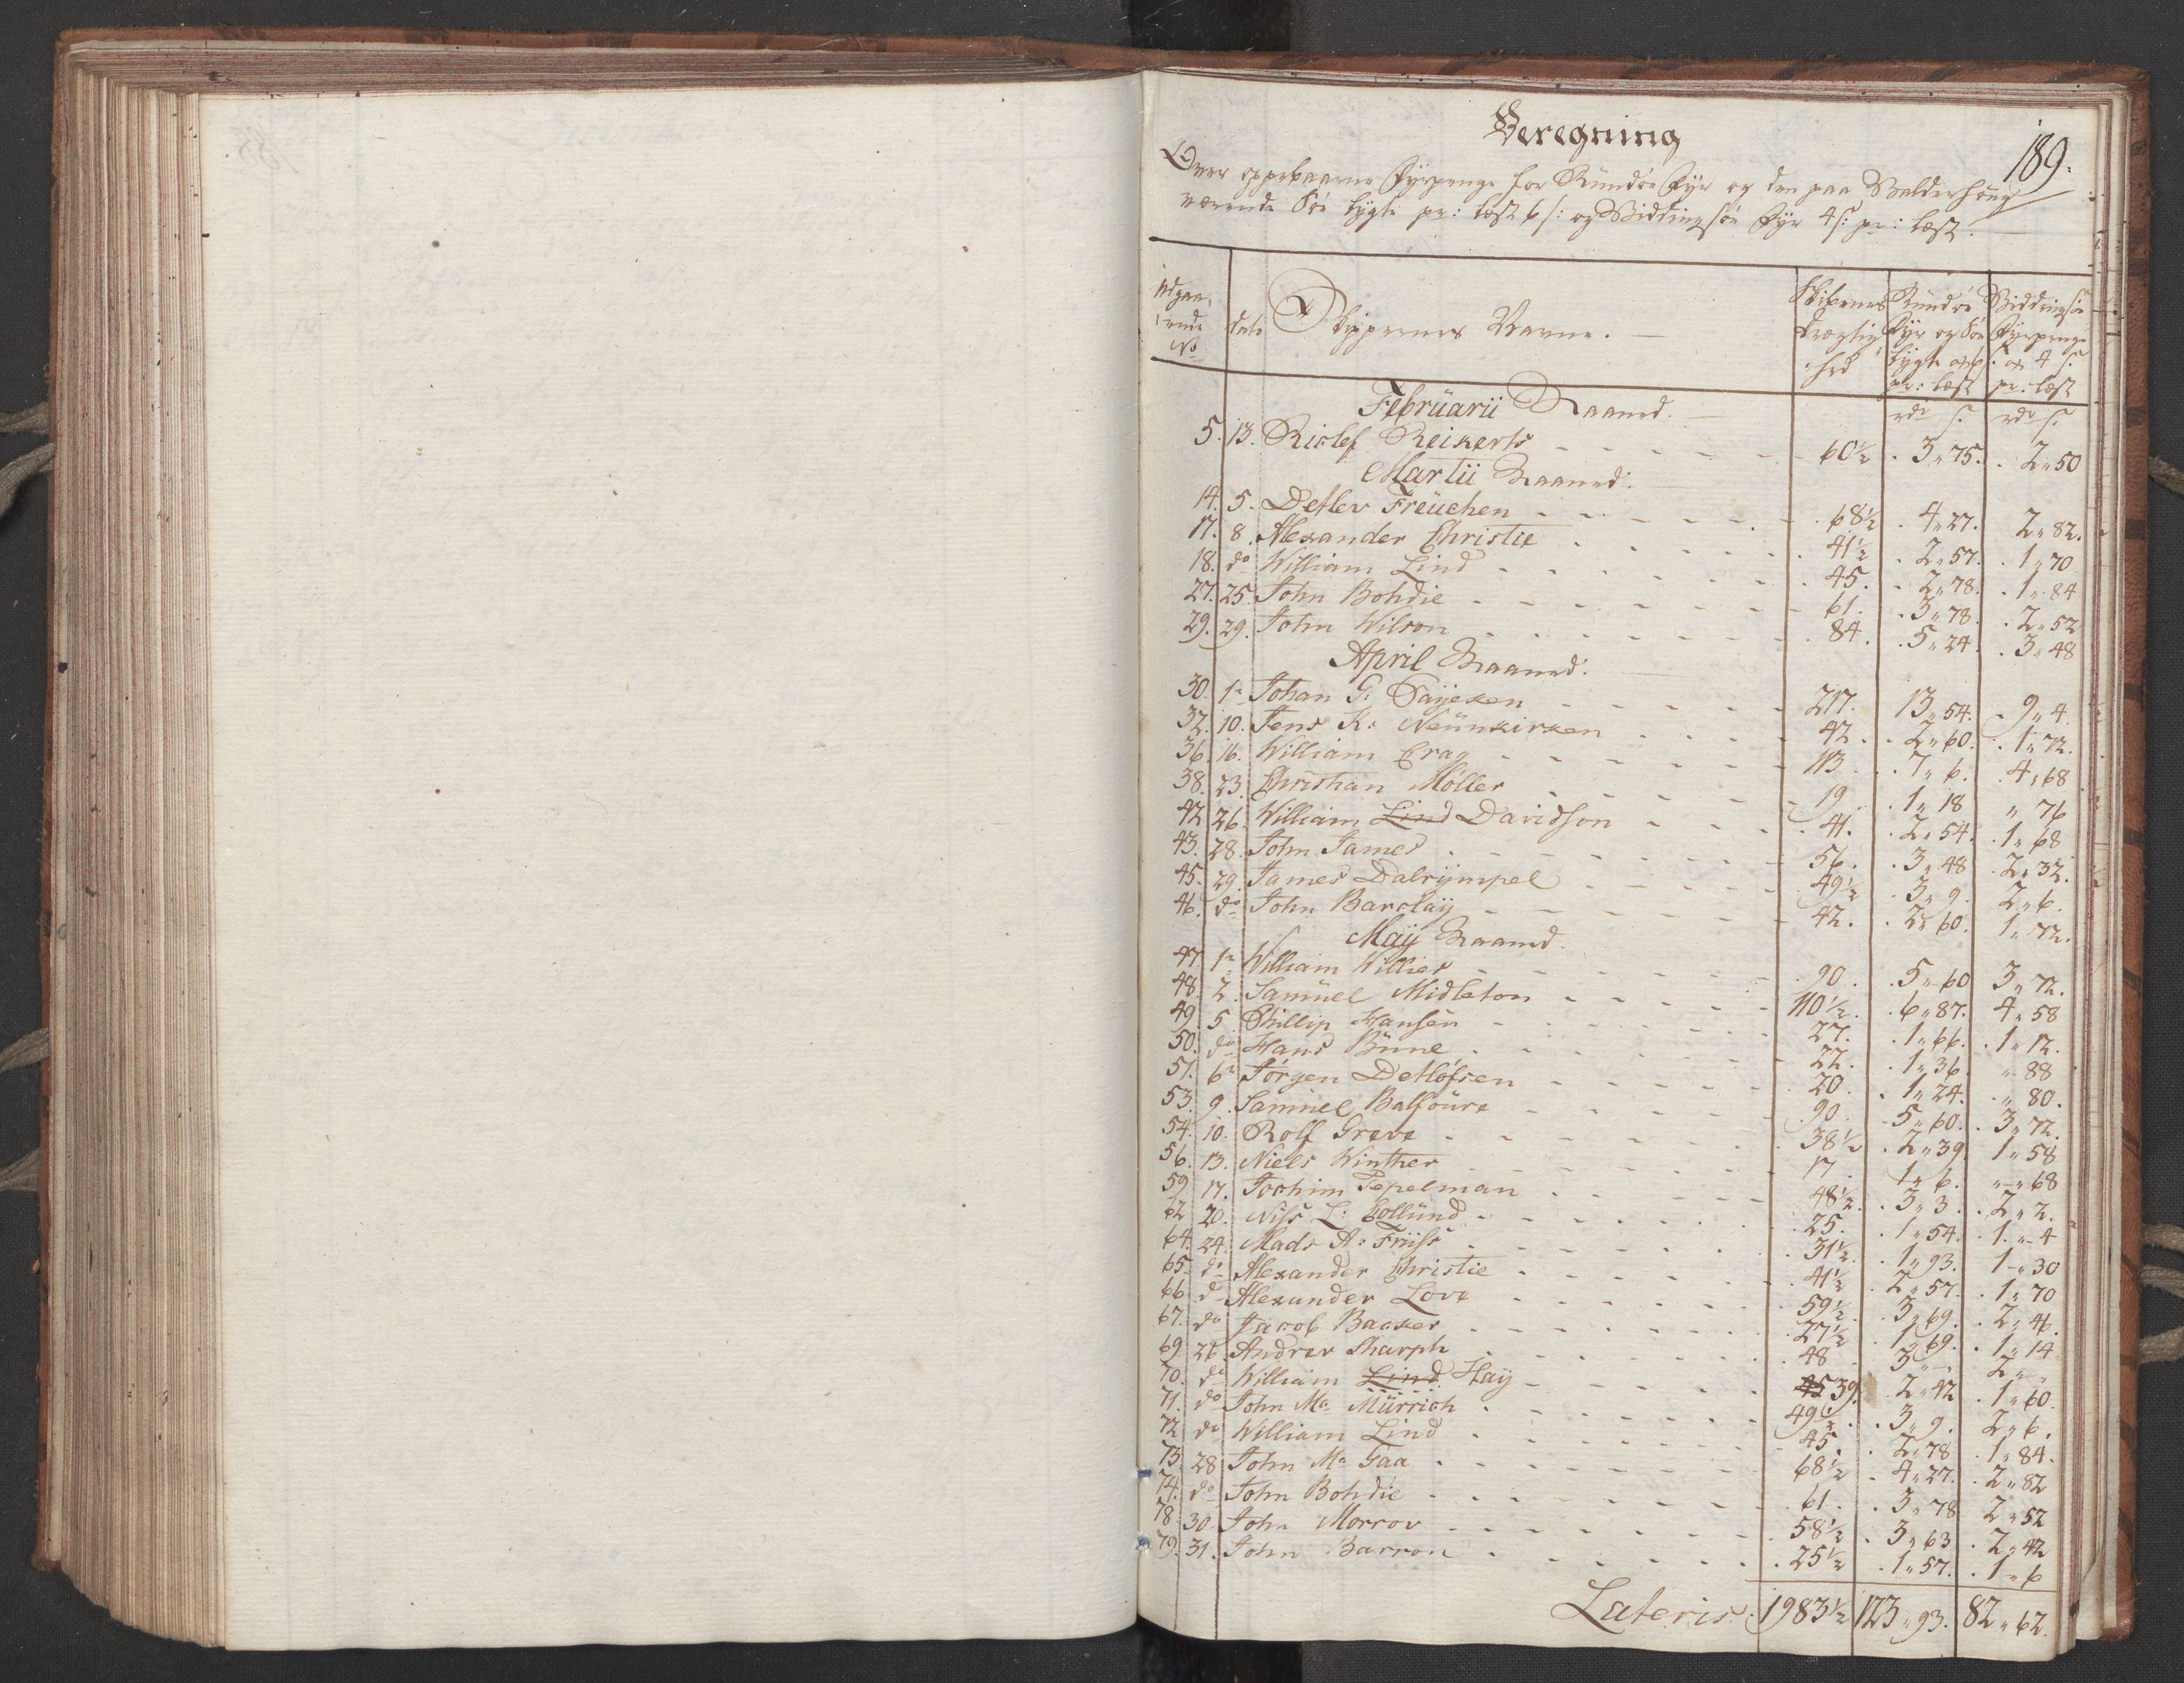 189.
Beregning
Over oppebaarne Fyrpenge for Rundöe Fyr og den paa Walderhoug
værende Söe Lygte pr: læst 6 s: og Widdingsöe Fyr 4 s: pr: læst.
udgaa-
ende
No
dato
Skippernes Navne.
Skibenes
Drægtig
hed
Rundöe
Fyr og Söe
Lygte a 6 s.
pr: læst
Widdingsöe
Fyrpenge
a 4 s.
pr: læst
Februarii Maaned.
rdr s. rdr s.
5. 13. Riolef Reikerts 60½ 3„75. 2„50
Martii Maaned.
14. 5. Detlev Freüchen 68½ 4„27. 2„82.
17. 8. Alexander Christie 41½ 2„57. 1„70
18. do William Lind 45. 2„78. 1„84
27. 25. John Bohdie 61. 3„78. 2„52
29. 29. John Wilson 84. 5„24. 3„48
April Maaned.
30. 1n Johan G: Taÿeken 217. 13„54. 9„4.
32. 10. Jens K: Neünkirken 42. 2„60. 1„72.
36. 16. William Crag 113 7„6. 4„68
38. 23. Christian Möller 19 1„18 „76
42 26. William Lind Davidson 41. 2„54. 1„68
43. 28. John James 56. 3„48 2„32.
45. 29. James Dalrÿmpel 49½ 3„9. 2„6.
46. do John Barclaÿ 42. 2„60. 1„72.
Maÿ Maaned.
47. 1n William Willies 90. 5„60 3„72.
48. 2. Samüel Midleton 110½. 6„87. 4„58
49. 5. Phillip Hansen 27. 1„66. 1„12.
50. do Hans Büne 22. 1„36. „88
51. 6n Jörgen Detlöfsen 20. 1„24. „80.
53. 9. Samüel Balfoüre 90. 5„60. 3„72.
54. 10. Rolf Greve 38½ 2„39. 1„58
56. 13. Niels Winther 17. 1„6. „68
59 17. Jochim Tepelman 48½. 3„3. 2„2.
62 20. Niss L: Collünd 25. 1„54. 1„4
64. 24. Mads A: Friiss 31½. 1„93. 1„30
65. do Alexander Christie 41½ 2„57. 1„70
66 do Alexander Love 59½. 3„69. 2„46.
67. do Jacob Baaker 27½ 1„69. 1„14
69. 26. Andrew Sharph 48 3„ 2„
70. do William Lind Haÿ 45 39. 2„42 1„60.
71. do John Mc Mürrich 49½. 3„9. 2„6.
72 do William Lind 45. 2„78 1„84.
73. 28 John Mc Gaa 68½ 4„27. 2„82
74. do John Bohdie 61. 3„78 2„52
78. 30. John Morrov 58½ 3„63 2„42
79. 31. John Barron 25½ 1„57. 1„6
Lateris: 1983½ 123„93. 82„62.